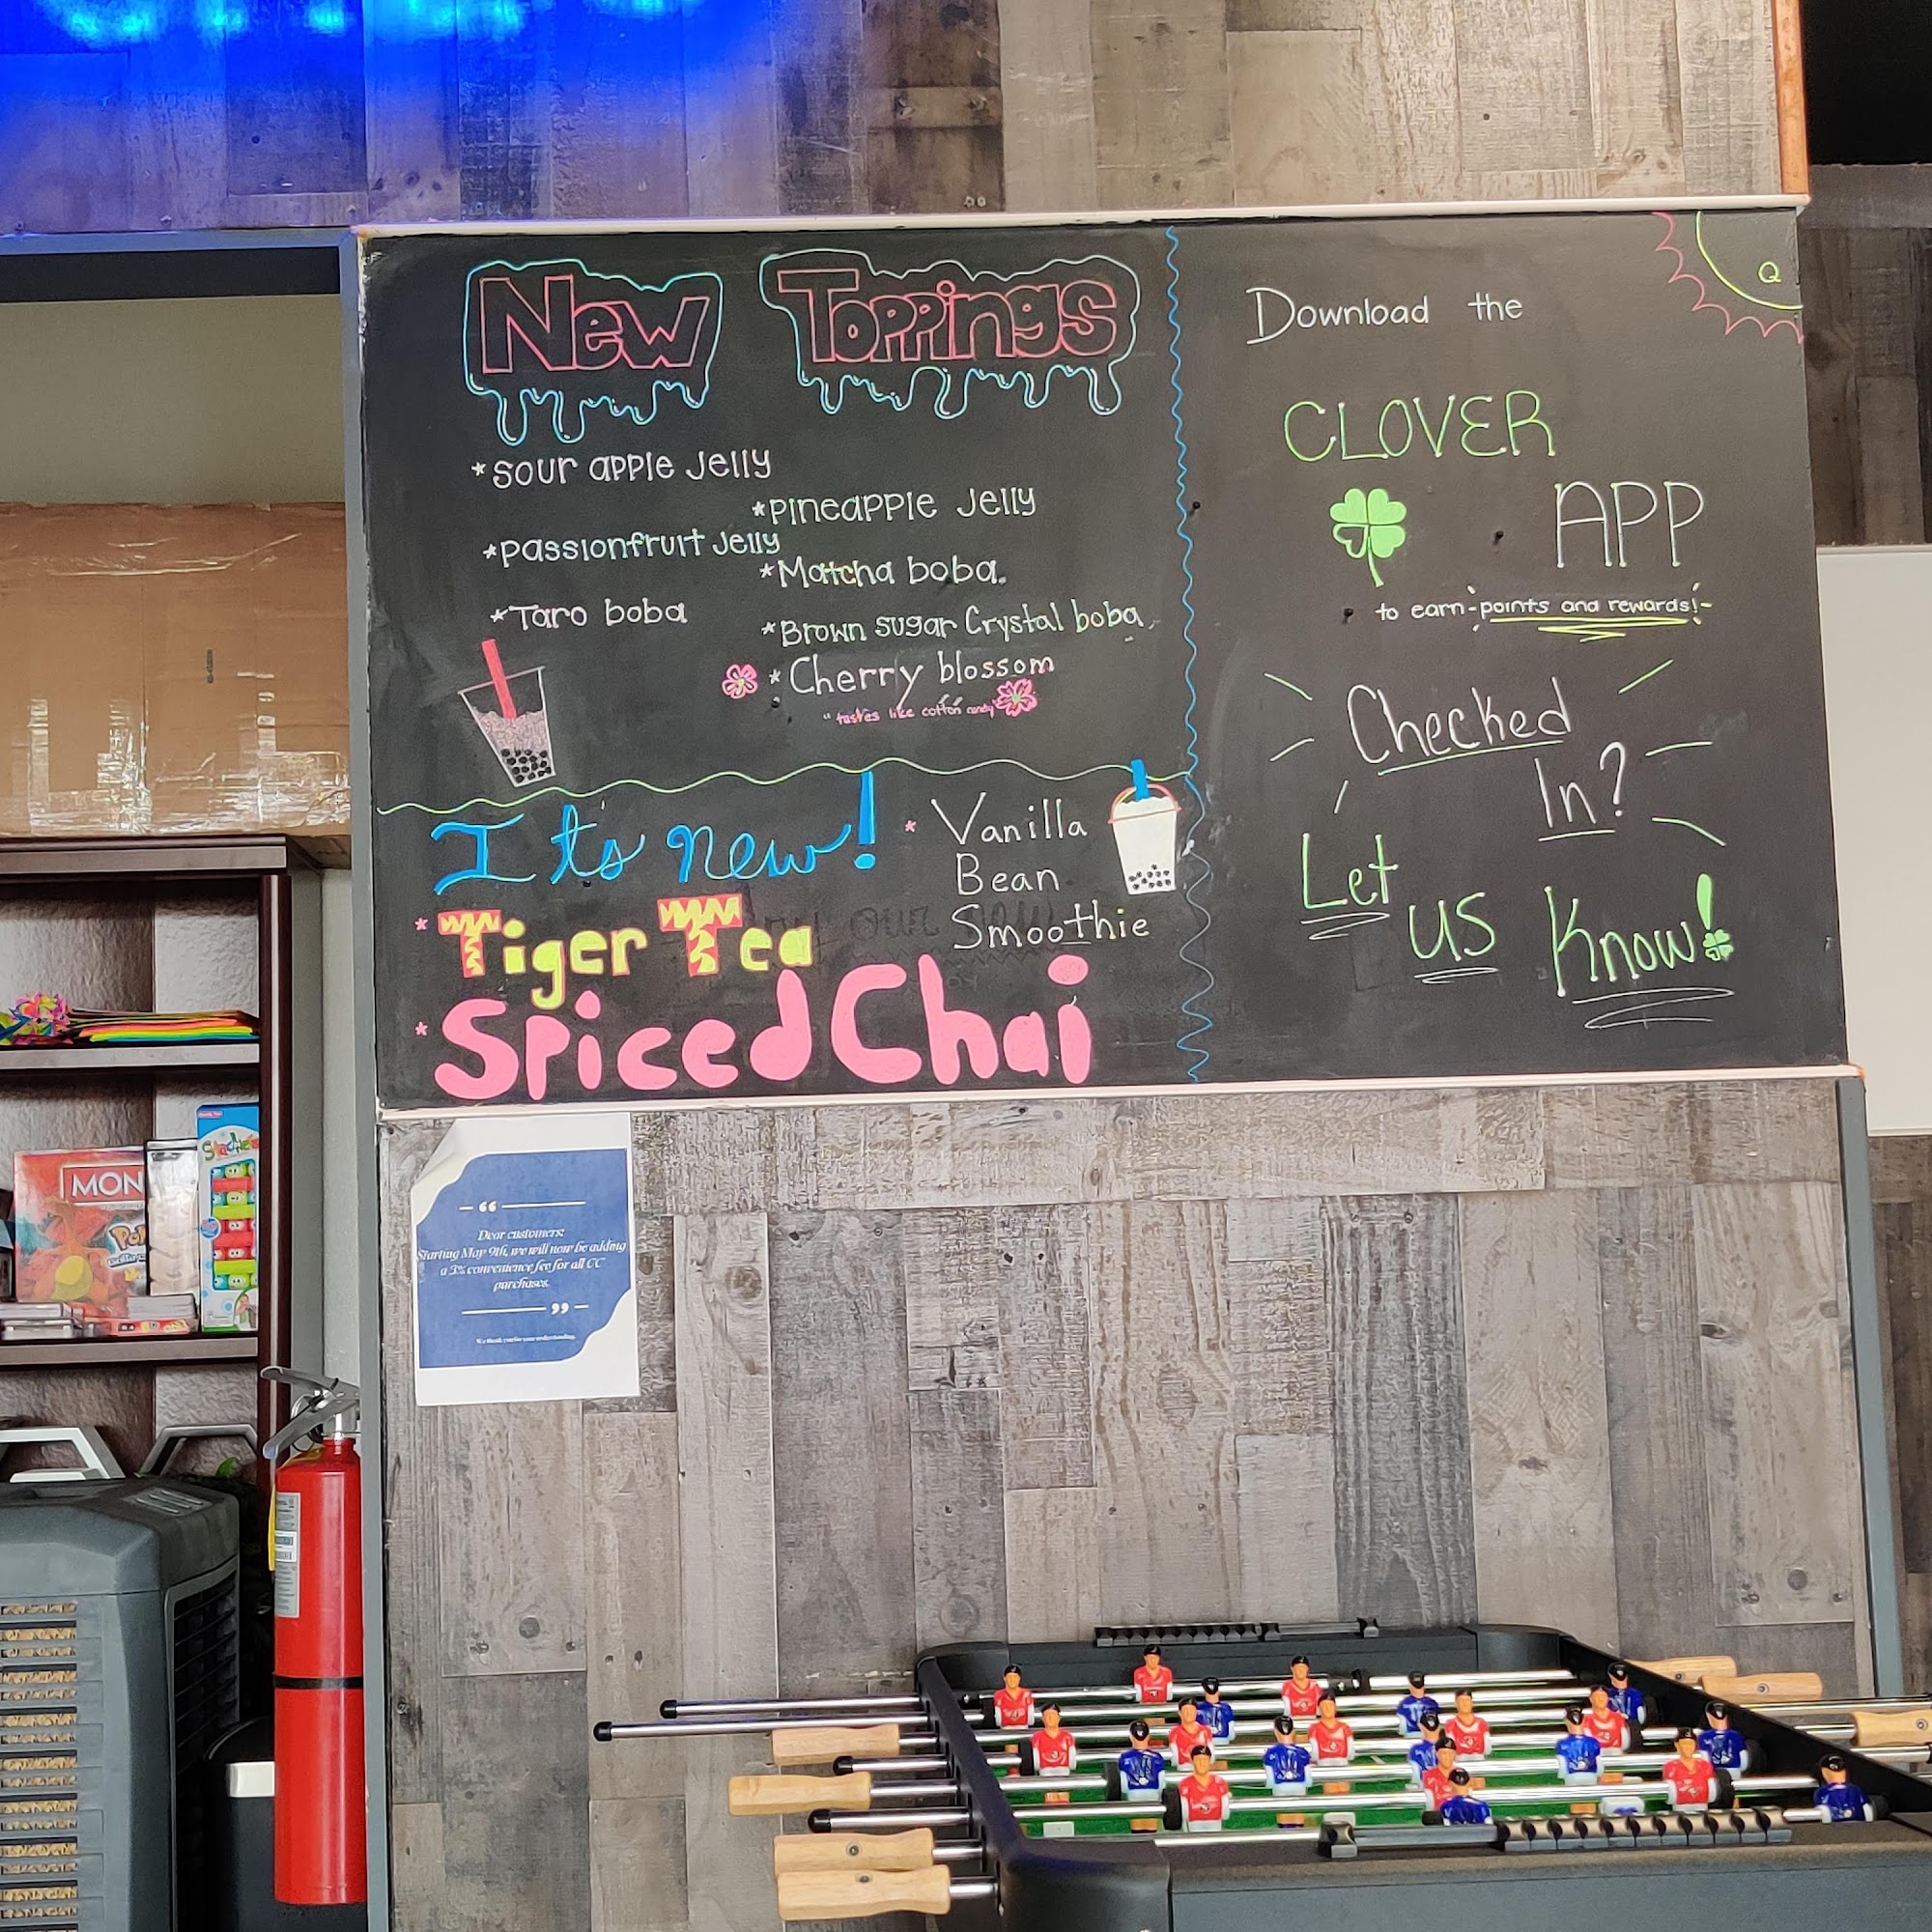 New Toppings
*sour apple Jelly
*Pineapple Jelly
*passionfruit Jelly
*Matcha boba.
*Taro boba
*Brown sugar Crystal boba.
*Cherry blossom
"tastes like cotton candy"
It's new!
*Vanilla
Bean
Smoothie
*Tiger Tea
*Spiced Chai
Download the
CLOVER
APP
to earn -points and rewards!-
Checked
In?
Let
us
Know!
MON
“
Dear customers:
Starting May 9th, we will now be adding
a 3% convenience fee for all CC
purchases.
”
We thank you for your understanding.